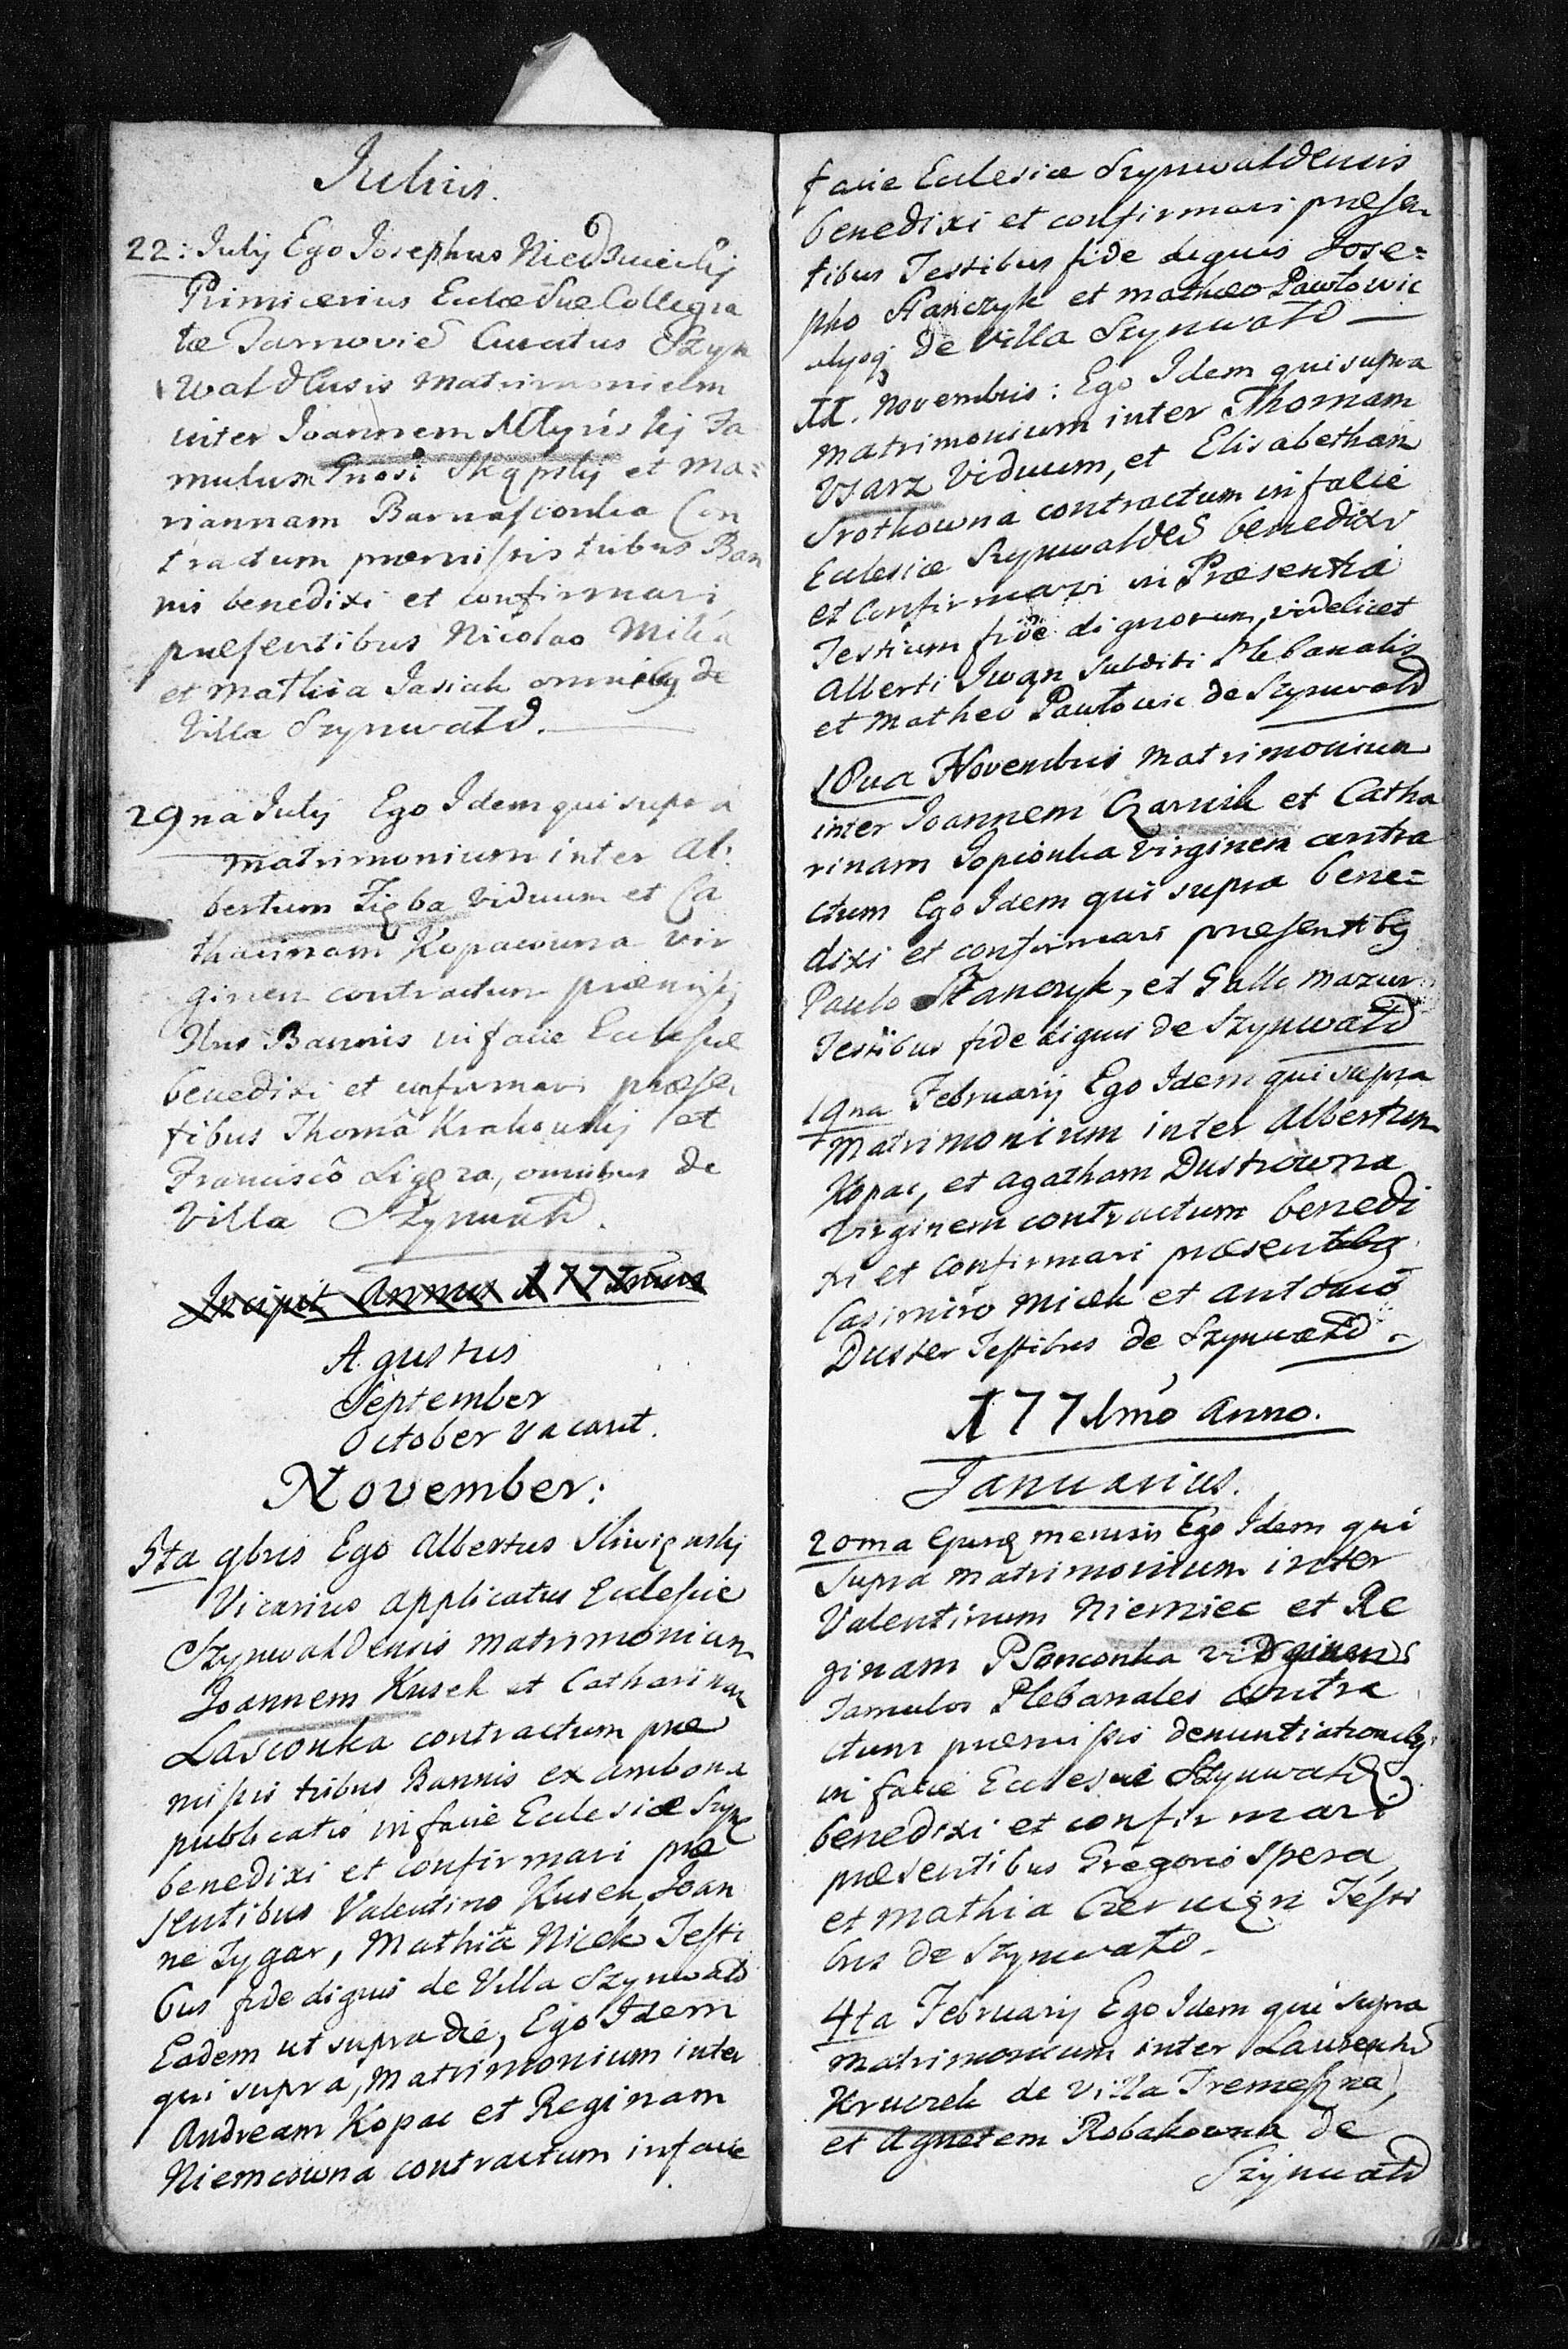 Julius.
22: July Ego Josephus Niedzwiecky
Primicerius Ecclæ Suæ Collegia
tæ Tarnovie Curatus Szyn
waldensis matrimonium
inter Joannem Młyński Fa
mulum Gnosi Skąpsky et Ma=
riannam Barnasionka Con
tractum præmissis tribus Ban
nis benedixi et confirmavi
præsentibus Nicolao
et Mathia Jasiak omnibg de
Villa Szynwałd.
29na July Ego Idem qui supra
matrimonium inter Al:
bertum Zięba Viduum et Ca
tharinam Kopacowna Vir
ginem contractum præmissis
Bannis in facie Ecclesiæ
benedixi et confirmavi præsen
tibus Thomâ Krakowsky et
Franciscô Ligęza, omnibus de
Villa Szynwałd.
Incipit Annus
Agustus
September
October Vacant.
November:
5ta 9bris Ego Albertus
Vicarius applicatus Eclesiæ
Szynwaldensis matrimonium
Joannem Kusek et Catharinam
Lasionka contractum præ
missis tribus Bannis ex ambona
publicatis in facie Ecclesiæ Szyn
benedixi et confirmavi præ
sentibus Valentino Kusek, Joan
ne Zygar, Mathia Micek Testi
bus fide dignis de Villa Szynwałd
Eadem ut supra die, Ego Idem
qui supra, Matrimonium inter
Andream Kopac et Reginam
Niemcowna contractum in facie
facie Eclesiæ Szynwaldensis
benedixi et confirmavi præsen
tibus Testibus fide dignis Jose=
pho Stanczyk et matheo Pawłowic
de Villa Szynwałd
Novembris: Ego Idem qui supra
matrimonium inter Thomam
Wsarz Viduum, et Elisabetham
Srothowna contractum in facie
Eclesiæ Szynwalden benedixi
et Confirmavi in Præsentia
Testium fide dignorum, videlicet
Alberti Iwan Subditi Plebanalis
et Matheo Pawłowic de Szynwałd
18va Novembris Matrimonium
inter Joannem Czarnik et Catha
rinam Popionka Virginem contra
ctum Ego Idem qui supra bene=
dixi et confirmavi præsentibg
Paulo Stanczyk, et Gallo Mazur
Testibus fide dignis de Szynwałd
19na February Ego Idem qui supra
Matrimonium inter Albertum
Kopac, et Agatham Dustrowna
Virginem contractum benedi
xi et Confirmavi præsentibg
Casimiro Micek et Antonio
Duster Testibus de Szynwałd.
1771mo Anno.
Januarius.
20ma mensis Ego Idem qui
Supra matrimonium inter
Valentinum Niemiec et Re
ginam Psonconka virginem
Famulos Plebanales contra
ctum præmissis denuntiationibg
in facie Ecclesiæ Szynwałd
benedixi et confirmavi
præsentibus Gregorio Spera
et Mathia Testi
bus de Szynwałd.
4ta February Ego Idem qui supra
matrimonium inter Laurenti
Kruczek de Villa Tremeszna,
et Agnetem Robakowna de
Szynwałd